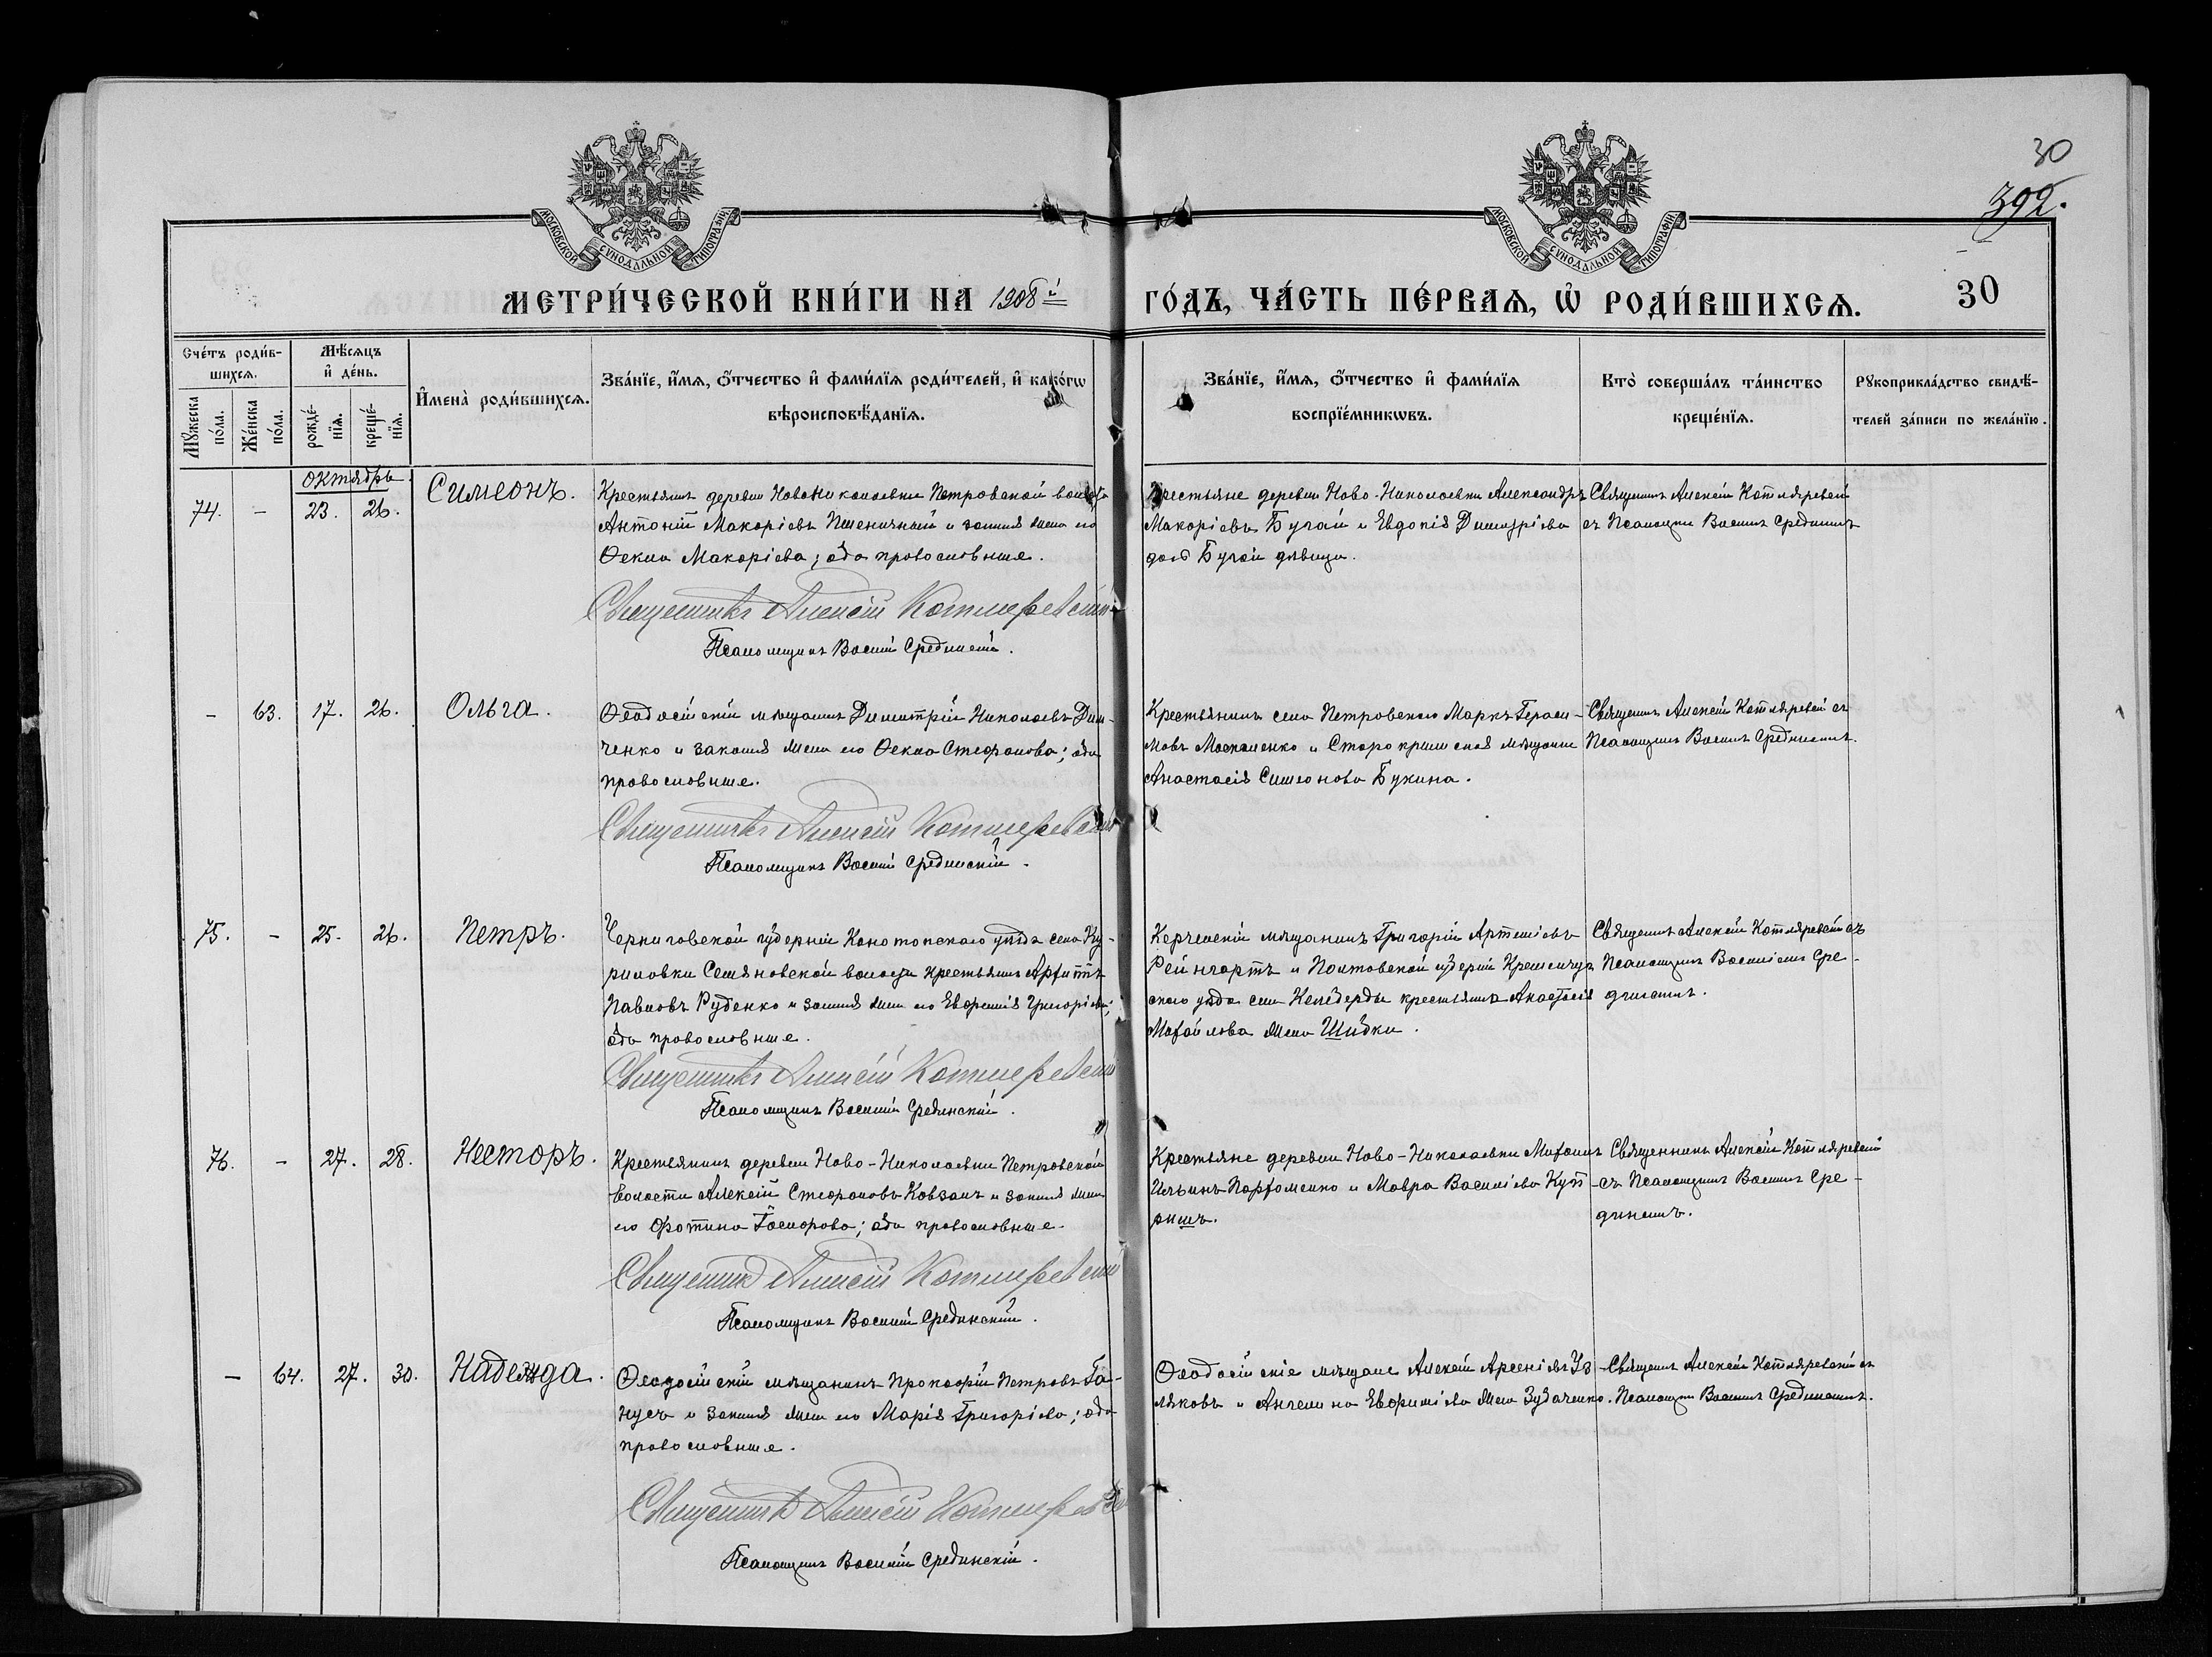 30
392.
МОСКОВСКОЙ СѴНОДАЛЬНОЙ ТИПОГРАФІИ
МОСКОВСКОЙ СѴНОДАЛЬНОЙ ТИПОГРАФІИ
МЕТРИ́ЧЕСКОЙ КНИ́ГИ НА 1908й
ГО́ДЪ, ЧА́СТЬ ПЕ́РВАѦ, Ѡ҆ РОДИ́ВШИХСѦ.
30
Сче́тъ роди́в-
шихсѧ.
Мѹжеска
по́ла.
Же́нска
по́ла.
Мѣ́сѧцъ
и҆ де́нь.
рожде́-
нїѧ.
креще́-
нїѧ.
И҆мена̀ роди́вшихсѧ.
Зва́нїе, и҆́мѧ, ѻ҆́тчество и҆ фами́лїѧ роди́телей, и҆ како́гѡ
вѣроисповѣ́данїѧ.
Зва́нїе, и҆́мѧ, ѻ҆́тчество и҆ фами́лїѧ
воспрїе́мникѡвъ.
Кто̀ соверша́лъ та́инство
креще́нїѧ.
Рѹкоприкла́дство свидѣ́-
телей за́писи по жела́нїю.
октябрь.
74. - 23. 26.
Симеонъ.
Крестьянинъ деревни Новониколаевки Петровской волости
Антоній Макоріевъ Пшеничный и законная жена его
Ѳекла Макоріева; оба православные.
Священникъ Алексій Котляревскій
Псаломщикъ Василій Срединскій.
Крестьяне деревни Ново-Николаевки Александръ
Макоріевъ Бугай и Евдокія Димитріева
Бугай дѣвица.
Священникъ Алексій Котляревскій
съ Псаломщик Василіем Срединскимъ
- 63. 17. 26.
Ольга.
Ѳеодосійскій мѣщанинъ Димитрій Николаевъ Дим-
ченко и законная жена его Ѳекла Стефанова; оба
православные.
Священникъ Алексій Котляревскій
Псаломщикъ Василій Срединскій.
Крестьянинъ села Петровскаго Маркъ Гераси-
мовъ Москаленко и Старокрымская мѣщанка
Анастасія Симеонова Букина.
Священникъ Алексій Котляревскій съ
Псаломщикъ Василіем Срединскимъ.
75. - 25. 26.
Петръ.
Черниговской губерніи Конотопскаго уѣзда села Ку-
риловки Семяновской волости крестьянинъ Архиппъ
Павловъ Руденко и законная жена его Евфросинія Григоріева;
оба православные.
Священникъ Алексій Котляревскій
Псаломщикъ Василій Срединскій.
Керченскій мѣщанинъ Григорій Артеміевъ
Рейнгартъ и Полтавской губерніи Кременчуг-
скаго уѣзда села Келеберды крестьянка Анастасія
Михайлова жена Шидки.
Священникъ Алексій Котляревскій съ
Псаломщикъ Василіемъ Сре-
динскимъ.
76. - 27. 28.
Несторъ.
Крестьянинъ деревни Ново-Николаевки Петровской
волости Алексій Стефановъ Ковзанъ и законная жена
его Фотина Гаспорова; оба православные.
Священникъ Алексій Котляревскій
Псаломщикъ Василій Срединскій.
Крестьяне деревни Ново-Николаевки Михаилъ
Ильинъ Парфоменко и Мавра Василіева Куп-
ришъ.
Священникъ Алексій Котляревскій
съ Псаломщикъ Василіем Сре-
динскимъ.
- 64. 27. 30.
Надежда.
Ѳеодосійскій мѣщанинъ Прокофій Петровъ Га-
нусъ и законная жена его Марія Григоріева; оба
православные.
Священникъ Алексій Котляревскій
Псаломщикъ Василій Срединскій.
Ѳеодосійскіе мѣщане Алексій Арсеніевъ Уз-
ляковъ и Ангелина Евфиміева жена Зубаченко.
Священникъ Алексій Котляревскій съ
Псаломщик Василіем Срединскимъ.